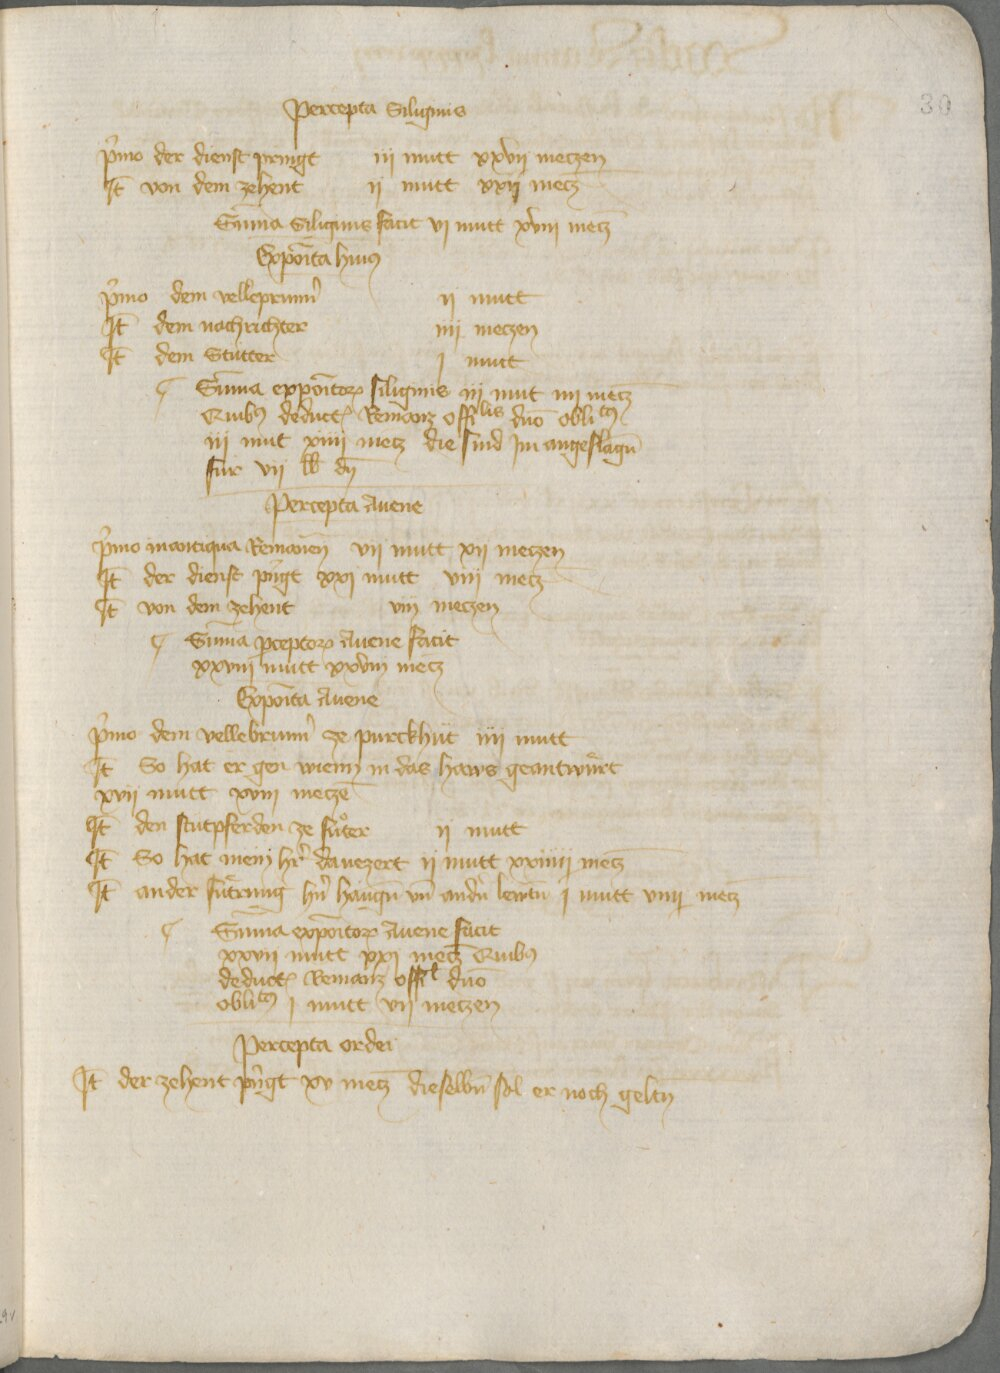 30
Percepta Siliginis
p̄mo der dienst pringt iii mutt xxvii meczen
It̄ von dem zehent ii mutt xxij mecz
Sum̄a Siliginis facit vi mutt xviii mecz
Expoīta huiꝰ
p̄mo dem velleprunn̄ ij mutt
It̄ dem nachrichter iiij meczen
It̄ dem Stutter j mutt
Sum̄a expoītorꝫ siliginis iij mut iiij mecz
Quibꝫ deductꝭ Remanz offilis duō oblitꝰ
iij mut xiiij mecz die sind Im angeslagn̄
fur vij lb dn̄
Percepta Avene
p̄mo in antiqua Remanen̄ vii mutt xii meczen
It̄ der dienst p̄ngt xxj mutt viii mecz
It̄ von dem zehent viij meczen
Sum̄a p̄ceptorꝫ Avene facit
xxviii mutt xxviii mecz
Expoīta Avene
p̄mo dem vellebrunn̄ ze purckhut iiij mutt
It̄ So hat er gen wienn in das haws geantwurt
xvij mutt xviii meczē
It̄ den stutpferden ze fůter ij mutt
It̄ So hat mein hr̄ dauezert ij mutt xxiiij mecz
It̄ ander futrung hn̄ haugn̄ vn̄ andn̄ lewtn̄ j mutt viiij mecz
Sum̄a expoītorꝫ Avene facit
xxvii mutt xxi mecz Quibꝫ
deductꝭ Remanz offil duō
oblitꝰ j mutt vij meczen
Percepta ordei
It̄ der zehent p̄ngt xv mecz dieselbn̄ sol er noch geltn